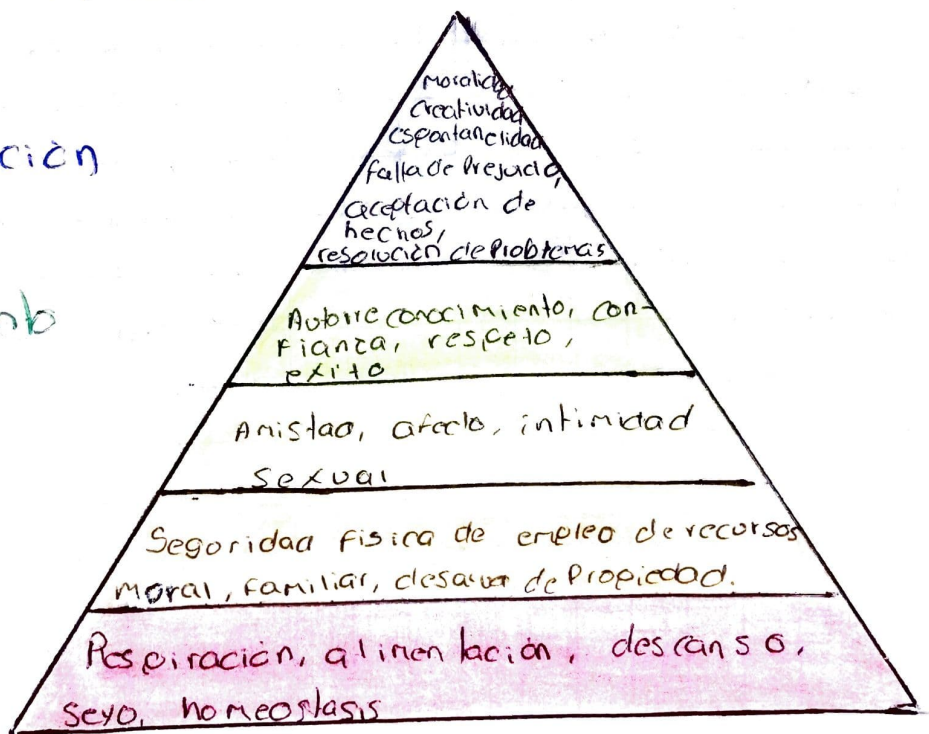 ción
nto
Moralidad
creatividad
espontaneidad
falta de Prejuicio,
aceptación de
hechos,
resolución de Problemas
Autorreconocimiento, con-
fianza, respeto,
exito
Amistad, afecto, intimidad
sexual
Seguridad fisica de empleo de recursos
moral, familiar, de de Propiedad.
Respiración, alimentación, descanso,
sexo, homeostasis